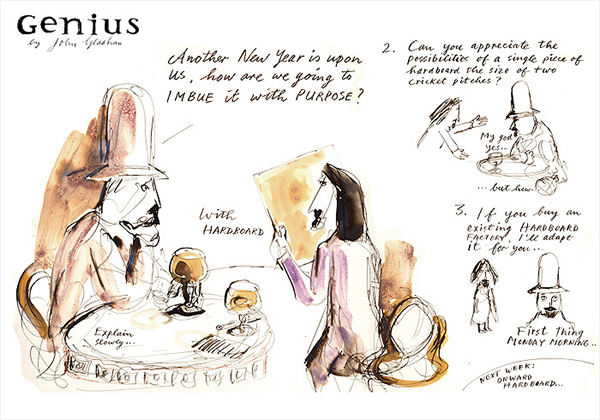 Genius
by John Glashan
Another New Year is upon
us, how are we going to
IMBUE it with PURPOSE?
With
HARDBOARD
Explain
slowly...
2. Can you appreciate the
possibilities of a single piece of
hardboard the size of two
cricket pitches?
My god
yes...
...but how.
3. If you buy an
existing HARDBOARD
FACTORY, I'll adapt
it for you...
First thing
MONDAY MORNING..
NEXT WEEK:
ONWARD
HARDBOARD...